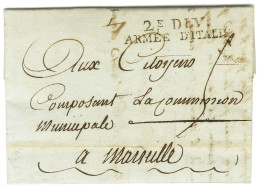 2E DIV.
ARMÉE D'ITALIE
Aux Citoyens
Composant La Commission
Municipale
a Marseille